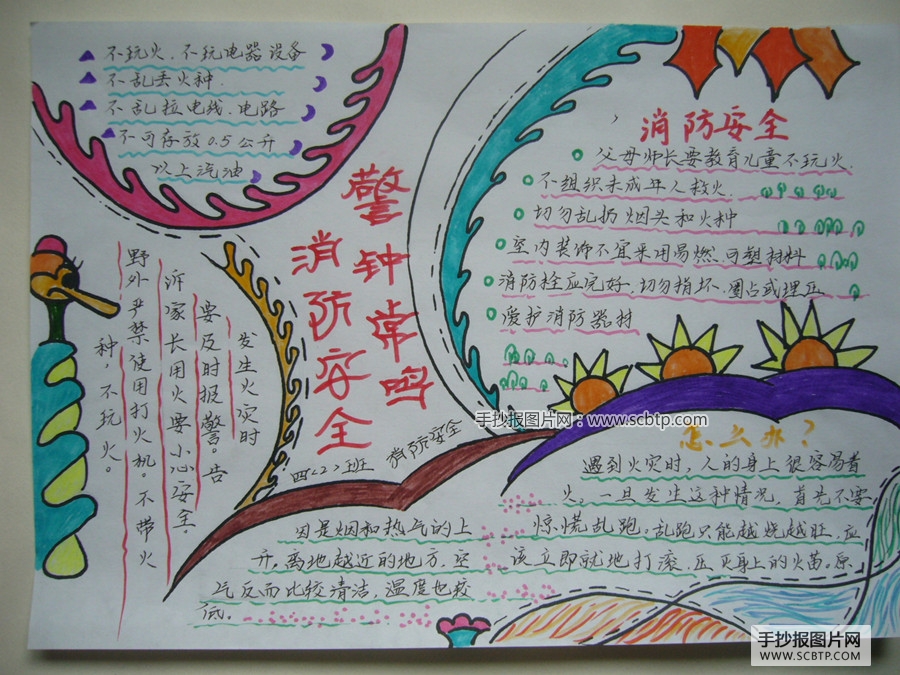 不玩火、不玩电器设备
不乱丢火种
不乱拉电线、电路
不可存放0.5公升
以上汽油
警钟常鸣
消防安全
四<2>班
消防安全
发生火灾时
要及时报警。告
诉家长用火要小心安全。
野外严禁使用打火机。不带火
种,不玩火。
消防安全
父母师长要教育儿童不玩火.
不组织未成年人救火.
切勿乱扔烟头和火种
室内装饰不宜采用易燃、可塑材料
消防栓应完好、切勿损坏、圈占或埋压
爱护消防器材
手抄报图片网:www.scbtp.com
怎么办?
遇到火灾时,人的身上很容易着
火,一旦发生这种情况,首先不要
惊慌乱跑,乱跑只能越烧越旺,应
该立即就地打滚,压灭身上的火苗。原
因是烟和热气的上
升,离地越近的地方,空
气反而比较清洁,温度也较
低。
手抄报图片网
WWW.SCBTP.COM